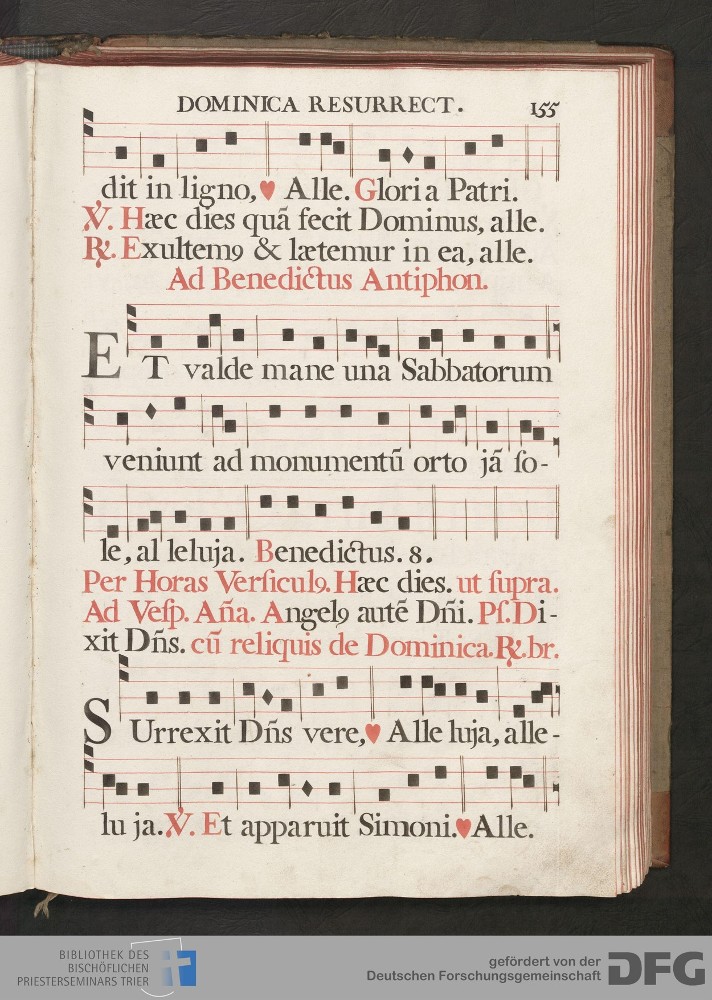 DOMINICA RESURRECT. 155
dit in ligno,♥ Alle. Gloria Patri.
℣. Hæc dies quã fecit Dominus, alle.
℟. Exultemꝰ & lætemur in ea, alle.
Ad Benedictus Antiphon.
ET valde mane una Sabbatorum
veniunt ad monumentũ orto jã ſo-
le, al leluja. Benedictus. 8.
Per Horas Verſiculꝰ. Hæc dies. ut ſupra.
Ad Veſp. Añа. Angelꝰ autẽ Dñi. Pſ. Di-
xit Dñs. cũ reliquis de Dominica. ℟. br.
SUrrexit Dñs vere,♥ Alle luja, alle-
lu ja. ℣. Et apparuit Simoni.♥ Alle.
BIBLIOTHEK DES
BISCHÖFLICHEN
PRIESTERSEMINARS TRIER
gefördert von der
Deutschen Forschungsgemeinschaft DFG